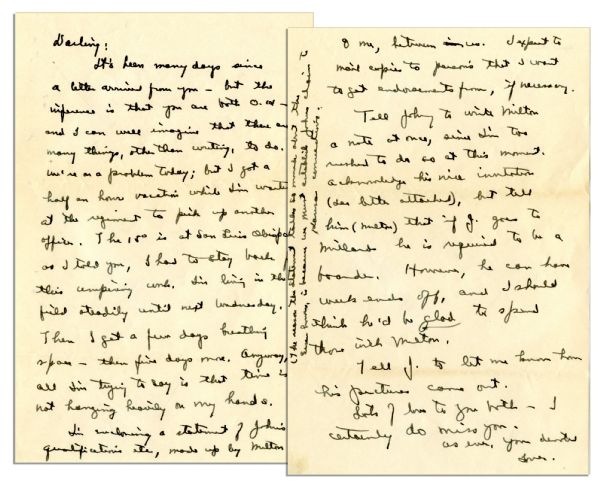 Darling:
It's been many days since
a letter arrived from you - but the
inference is that you are both O.K. -
and I can well imagine that there are
many things, other than writing, to do.
We're on a problem today; but I got a
half an hours vacation while I'm waiting
at the regiment to pick up another
officer. The 15o is at San Luis Obispo
as I told you, I had to stay back
this umpiring work. I'm living in the
field steadily until next Wednesday.
Then I get a few days breathing
space - then five days more. Anyway,
all I'm trying to say is that time is
not hanging heavily on my hands.
I'm enclosing a statement of John's
qualifications etc, made up by Milton
(The reason the statement talks so much about the
is because we must establish John's claim to
Kansas connections.
& me, between us. I expect to
mail copies to persons that I want
to get endorsements from, if necessary.
Tell Johnny to write Milton
a note at once, since I'm too
rushed to do so at this moment.
acknowledge his nice invitation
(see letter attached), but tell
him (Milton) that if J. goes to
Millards he is required to be a
boarder. However, he can have
weeks ends off, and I should
think he'd be glad to spend
those with Milton.
Tell J. to let me know how
his pictures come out.
Lots of love to you both - I
certainly do miss you.
as ever, your devoted
lover.